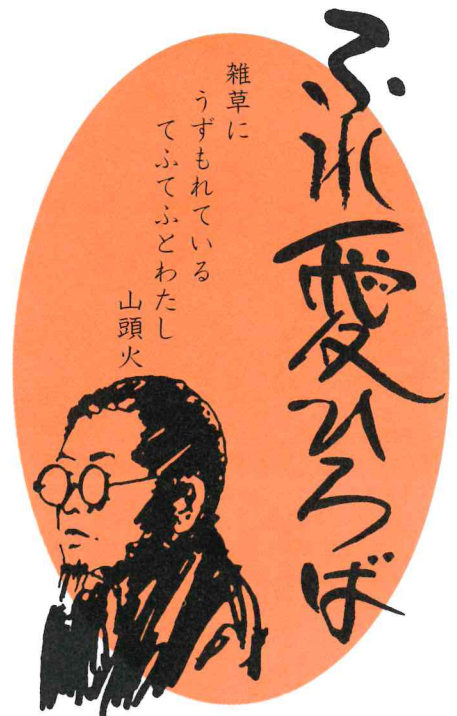 ふれ愛ひろば
雑草に
うずもれている
てふてふとわたし
山頭火